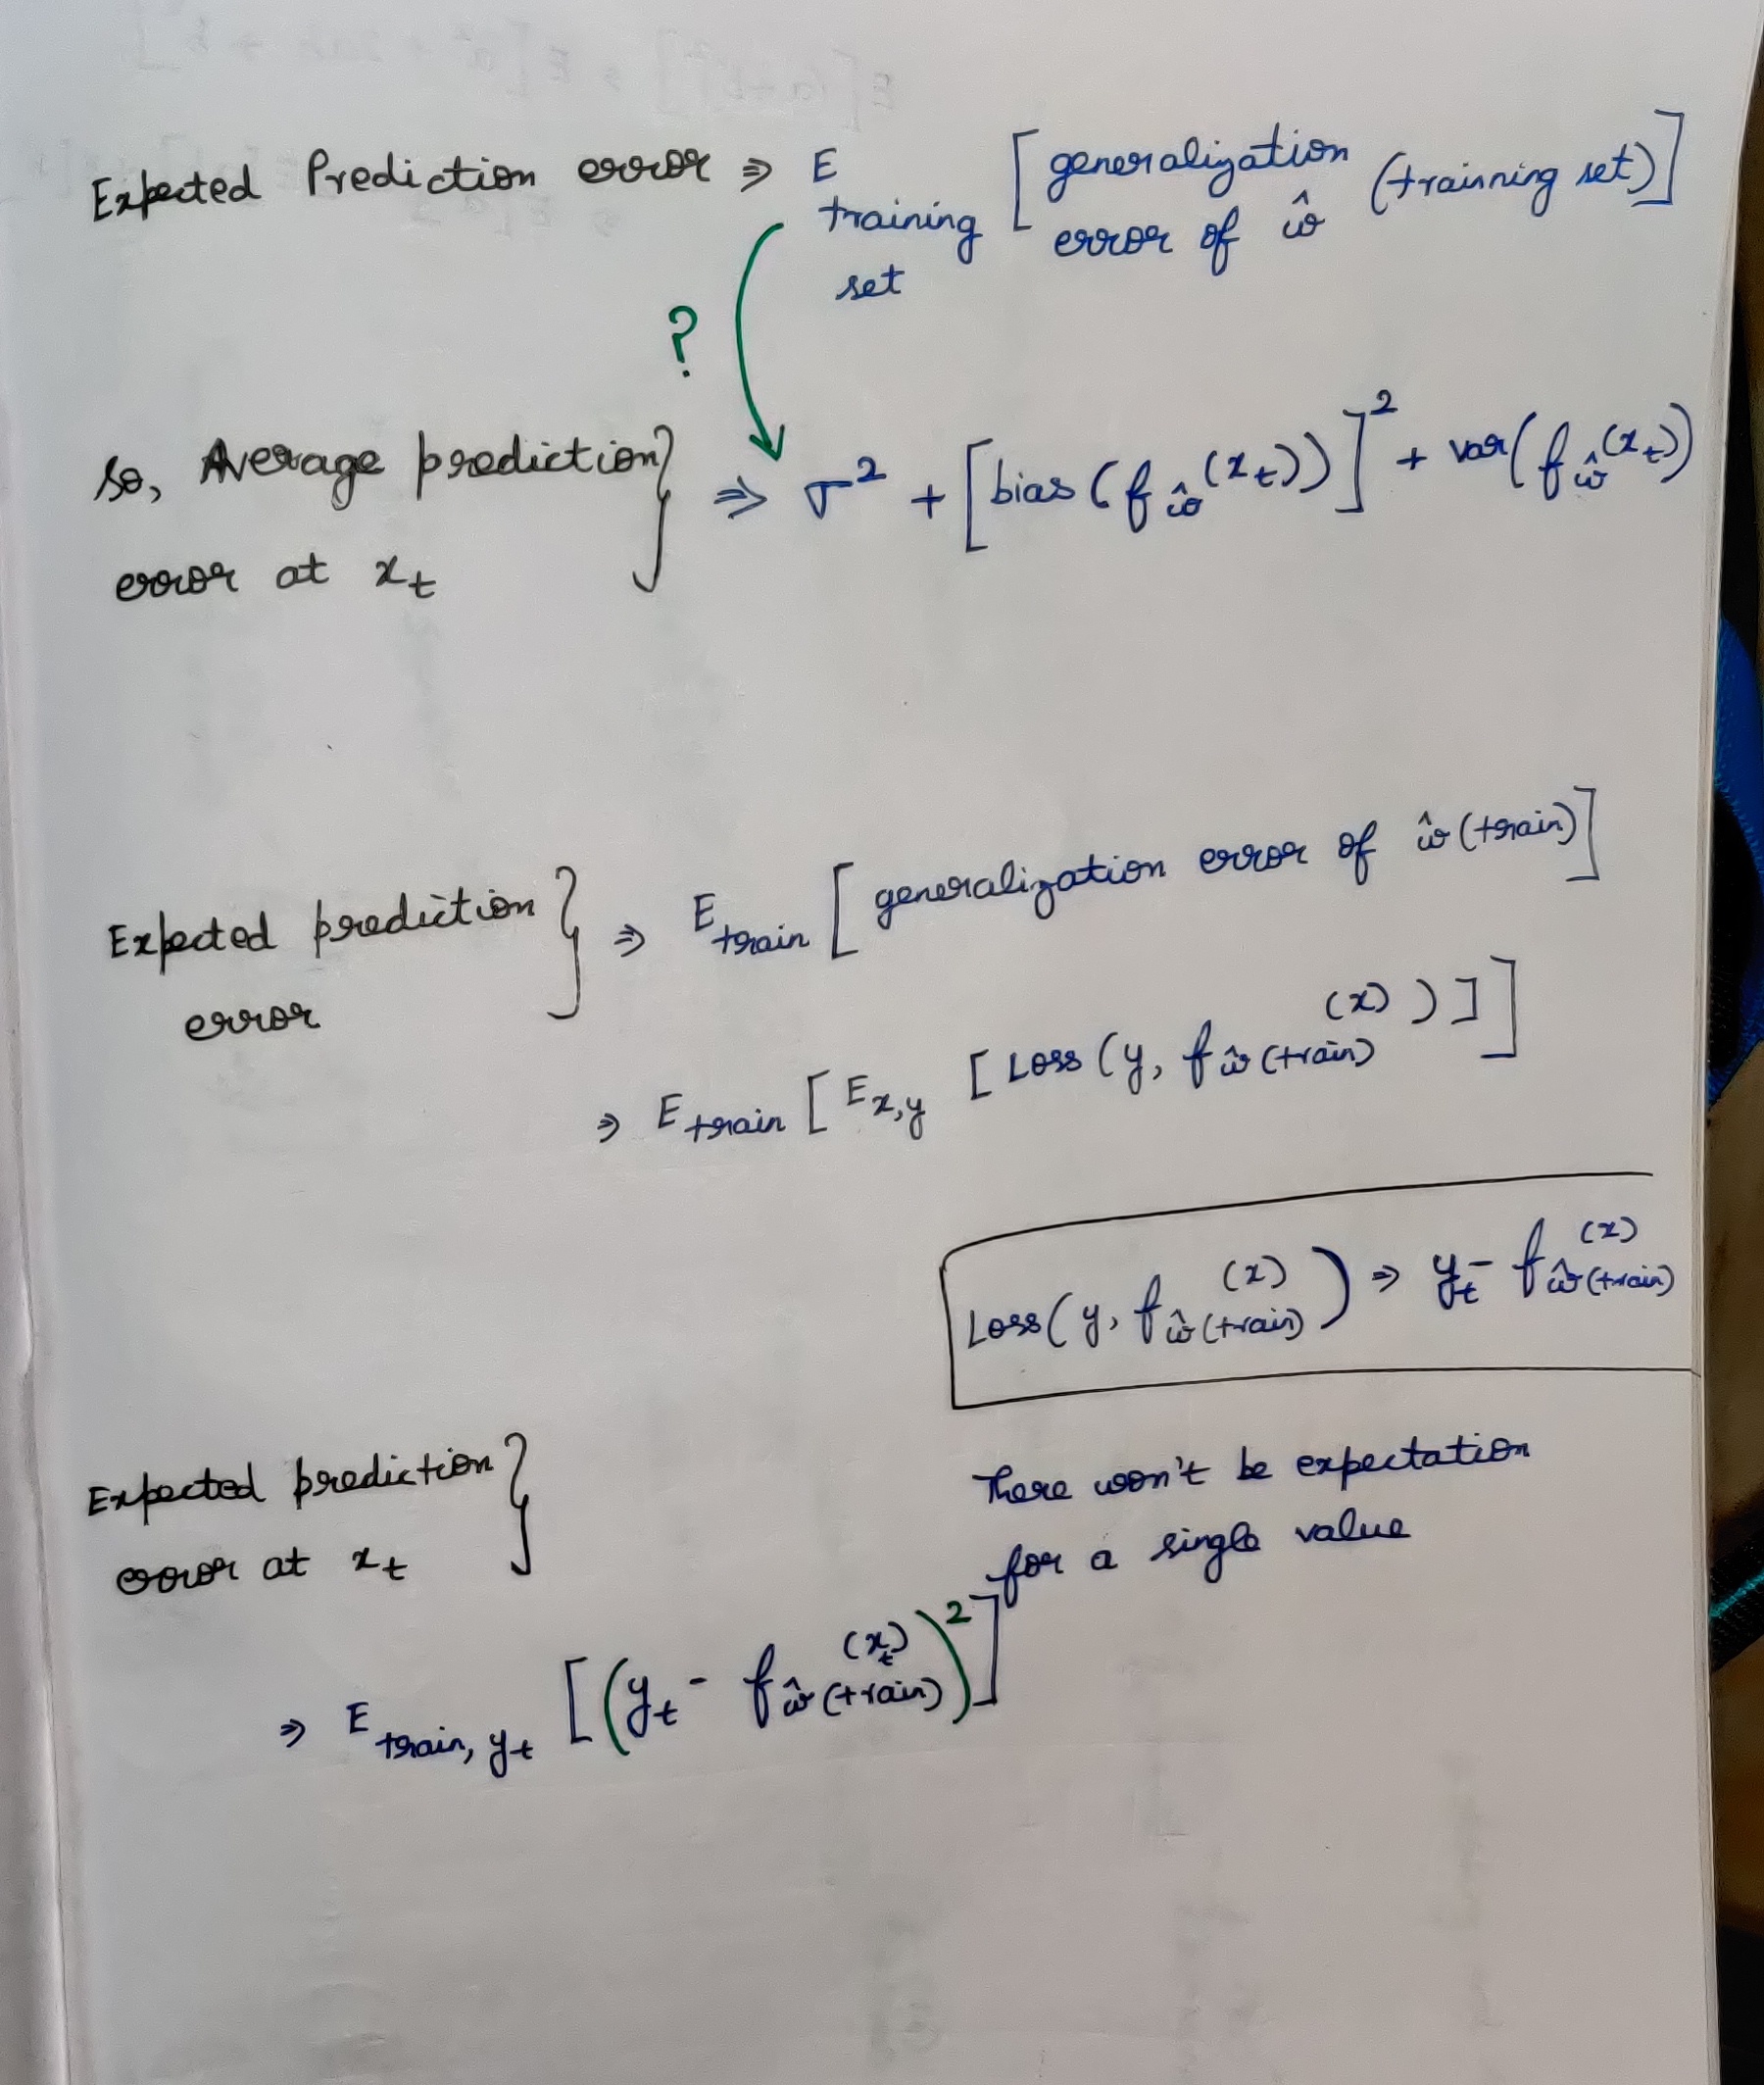 Expected Prediction error ⇒ E training set [generalization error of ŵ (trainning set)]
?
So, Average prediction error at x_t } ⇒ σ² + [bias (f_ŵ(x_t))]² + var(f_ŵ(x_t))
Expected prediction error } ⇒ E_train [generalization error of ŵ(train)]
⇒ E_train [E_x,y [Loss (y, f_ŵ(train)(x))]]
Loss(y, f_ŵ(train)(x)) ⇒ y_t - f_ŵ(train)(x)
Expected prediction error at x_t }
There won't be expectation
for a single value
⇒ E_train, y_t [(y_t - f_ŵ(train)(x_t))²]